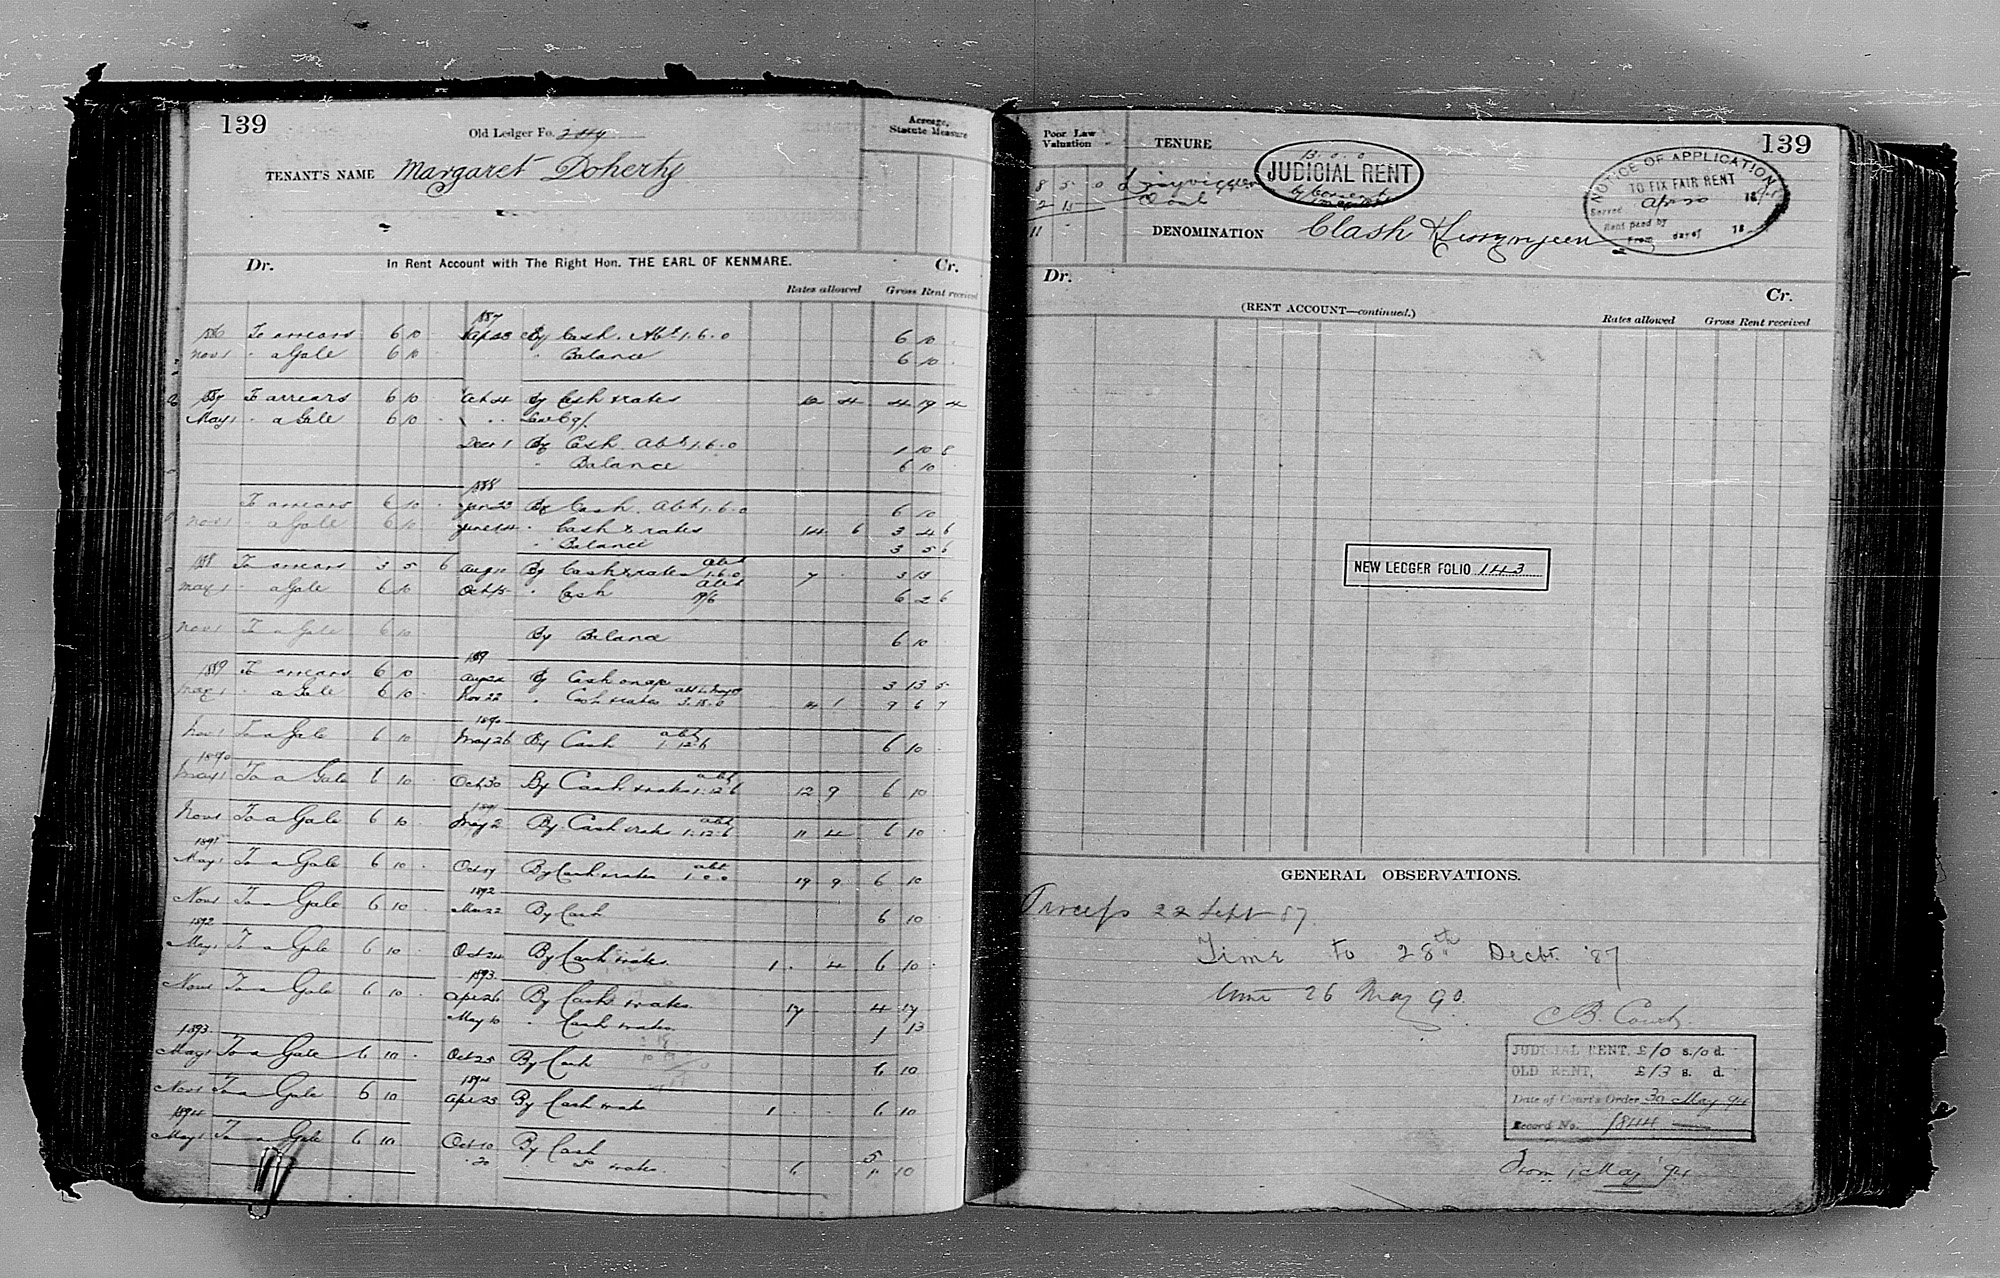 139
Old Ledger Fo.
Acreage, Statute Measure
TENANT'S NAME Margaret Doherty
Dr. In Rent Account with The Right Hon. THE EARL OF KENMARE. Cr.
Rates allowed Gross Rent received
1887
1886 To arrears 6 10 Apr 23 By Cash. Abt 1.6.0 6 10
Nov 1 " a Gale 6 10 " Balance 6 10
1887 To arrears 6 10 Oct 4 By Cash & rates 10 4 4 19 4
May 1 " a Gale 6 10
Decr 1 By Cash Abt 1.6.0 1 10 8
" Balance 6 10
1888
To arrears 6 10 Jan 23 By Cash. Abt 1.6.0 6 10
Nov 1 " a Gale 6 10 June 14 " Cash & rates 14 6 3 4 6
" Balance 3 5 6
1888 To arrears 3 5 6 Aug 11 By Cash & rates Abt 1.6.0 7 3 13
May 1 a Gale 6 10 Oct 15 " Cash Abt 19/6 6 2 6
Nov 1 To a Gale 6 10 By Balance 6 10
1889
1889 To arrears 6 10 Aug 24 By Cash on a/c 3 13 5
May 1 " a Gale 6 10 Nov 22 " Cash & rates 3.18.0 4 1 9 6 7
1890
Nov 1 To a Gale 6 10 May 26 By Cash abt 1.12.6 6 10
1890
May 1 To a Gale 6 10 Oct 30 By Cash & rates abt 1.12.6 12 9 6 10
1891
Nov 1 To a Gale 6 10 May 2 By Cash & rates abt 1.12.6 11 4 6 10
1891
May 1 To a Gale 6 10 Oct 19 By Cash & rates abt 1.0.0 19 9 6 10
1892
Nov 1 To a Gale 6 10 Mar 22 By Cash 6 10
1892
May 1 To a Gale 6 10 Oct 24 By Cash & rates 1 . 4 6 10
1893
Nov 1 To a Gale 6 10 Apr 26 By Cash & rates 17 4 17
May 10 " Cash & rates 1 13
1893
May 1 To a Gale 6 10 Oct 25 By Cash 6 10
1894
Nov 1 To a Gale 6 10 Apr 23 By Cash & rate 1 6 10
1894
May 1 To a Gale 6 10 Oct 10 By Cash 5
" 30 " Do & rates 6 1 10
139
Poor Law Valuation
TENURE
13.0.0
JUDICIAL RENT
by Consent
NOTICE OF APPLICATION
TO FIX FAIR RENT
Served Apr 20 18
Rent fixed by
From day of 18
8 5 0
2 15
11
DENOMINATION Clash
Dr. Cr.
(RENT ACCOUNT—continued.)
Rates allowed Gross Rent received
NEW LEDGER FOLIO 143
GENERAL OBSERVATIONS.
22 Sept 87
Time to 28th Decbr. '87
time 26 May 90.
JUDICIAL RENT, £10 s.10 d.
OLD RENT, £13 s. d.
Date of Court's Order 30 May 94
Record No. 1844
From 1 May '94